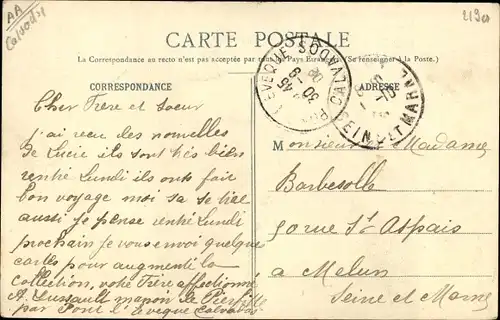 AA
Calvados
CARTE POSTALE
La Correspondance au recto n'est pas acceptée par tous les Pays Étrangers (Se renseigner à la Poste.)
CORRESPONDANCE
ADRESSE
PONT L'EVEQUE CALVADOS
30-8
SEINE ET MARNE
Cher Frère et Soeur
j'ai recu des nouvelles
De Lucie ils sont très bien
rentré Lundi ils ont fait
bon voyage moi sa se tire
aussi je pense rentré Lundi
prochain je vous envoi quelque
cartes pour augmenté la
Collection, votre Frère affectionné
A. Lussault manoir de
par Pont l'Eveque Calvados
Monsieur et Madame
Barbesolle
50 rue St Aspais
a Melun
Seine et Marne